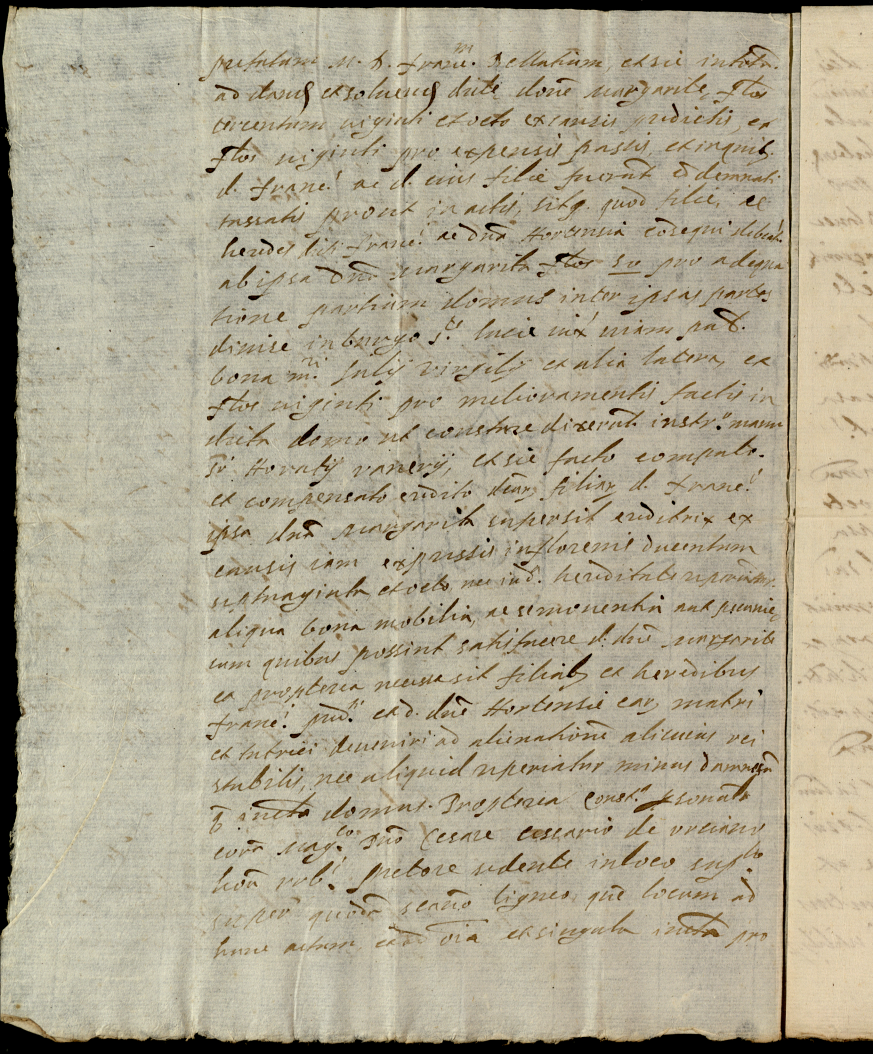 prefatum M. D. Franc.m Bellatium, et sic in totũ
ad dand et solvend dicte done Margarite flos
trecentum viginti et octo ex causis predictis, et
flos viginti pro expensis passis, et in quib.
d. Franc.i ac d. eius filie fuerũt cõdemnati
taxatis prout in actis, sitq. quod filie, ac
heredes dicti Franc.i ac dña Hortensia cõsequi debeãt
ab ipsa dña Margarita flos 50 pro adequa
tione partium domus inter ipsas partes
divise in burgo S.te Lucie iux.t viam pub.
bona m.ri Julij Virgilij et alia latera, et
flos viginti pro melioramentis factis in
dicta domo ut constare dixerũt instr.o manu
sr Horatij Ranerij, et sic facto computo
et compensato credito dictar. filiar. d. Franc.i
ipsa dña Margarita supersit creditrix ex
causis iam expressis in florenis ducentum
septuaginta et octo nec in d. hereditate reperiãtur
aliqua bona mobilia, ac semoventia aut pecunie,
cum quibus possint satisfacere d. dñe Margarite
et propterea necesse sit filiab. et heredibus
Franc.i pred.ti et d. dñe Hortensie ear. matri
et tutrici deveniri ad alienationẽ alicuius rei
stabilis, nec aliquid reperiatur minus damnosũ
q̃ dicta domus. Propterea const.e personalr
corã Mag.co Dño Cesare Cesario de
hon. pretore sedente in loco inf.to
super quodã scanno ligneo, quẽ locum ad
hunc actum, et ad oĩa et singula infrta pro